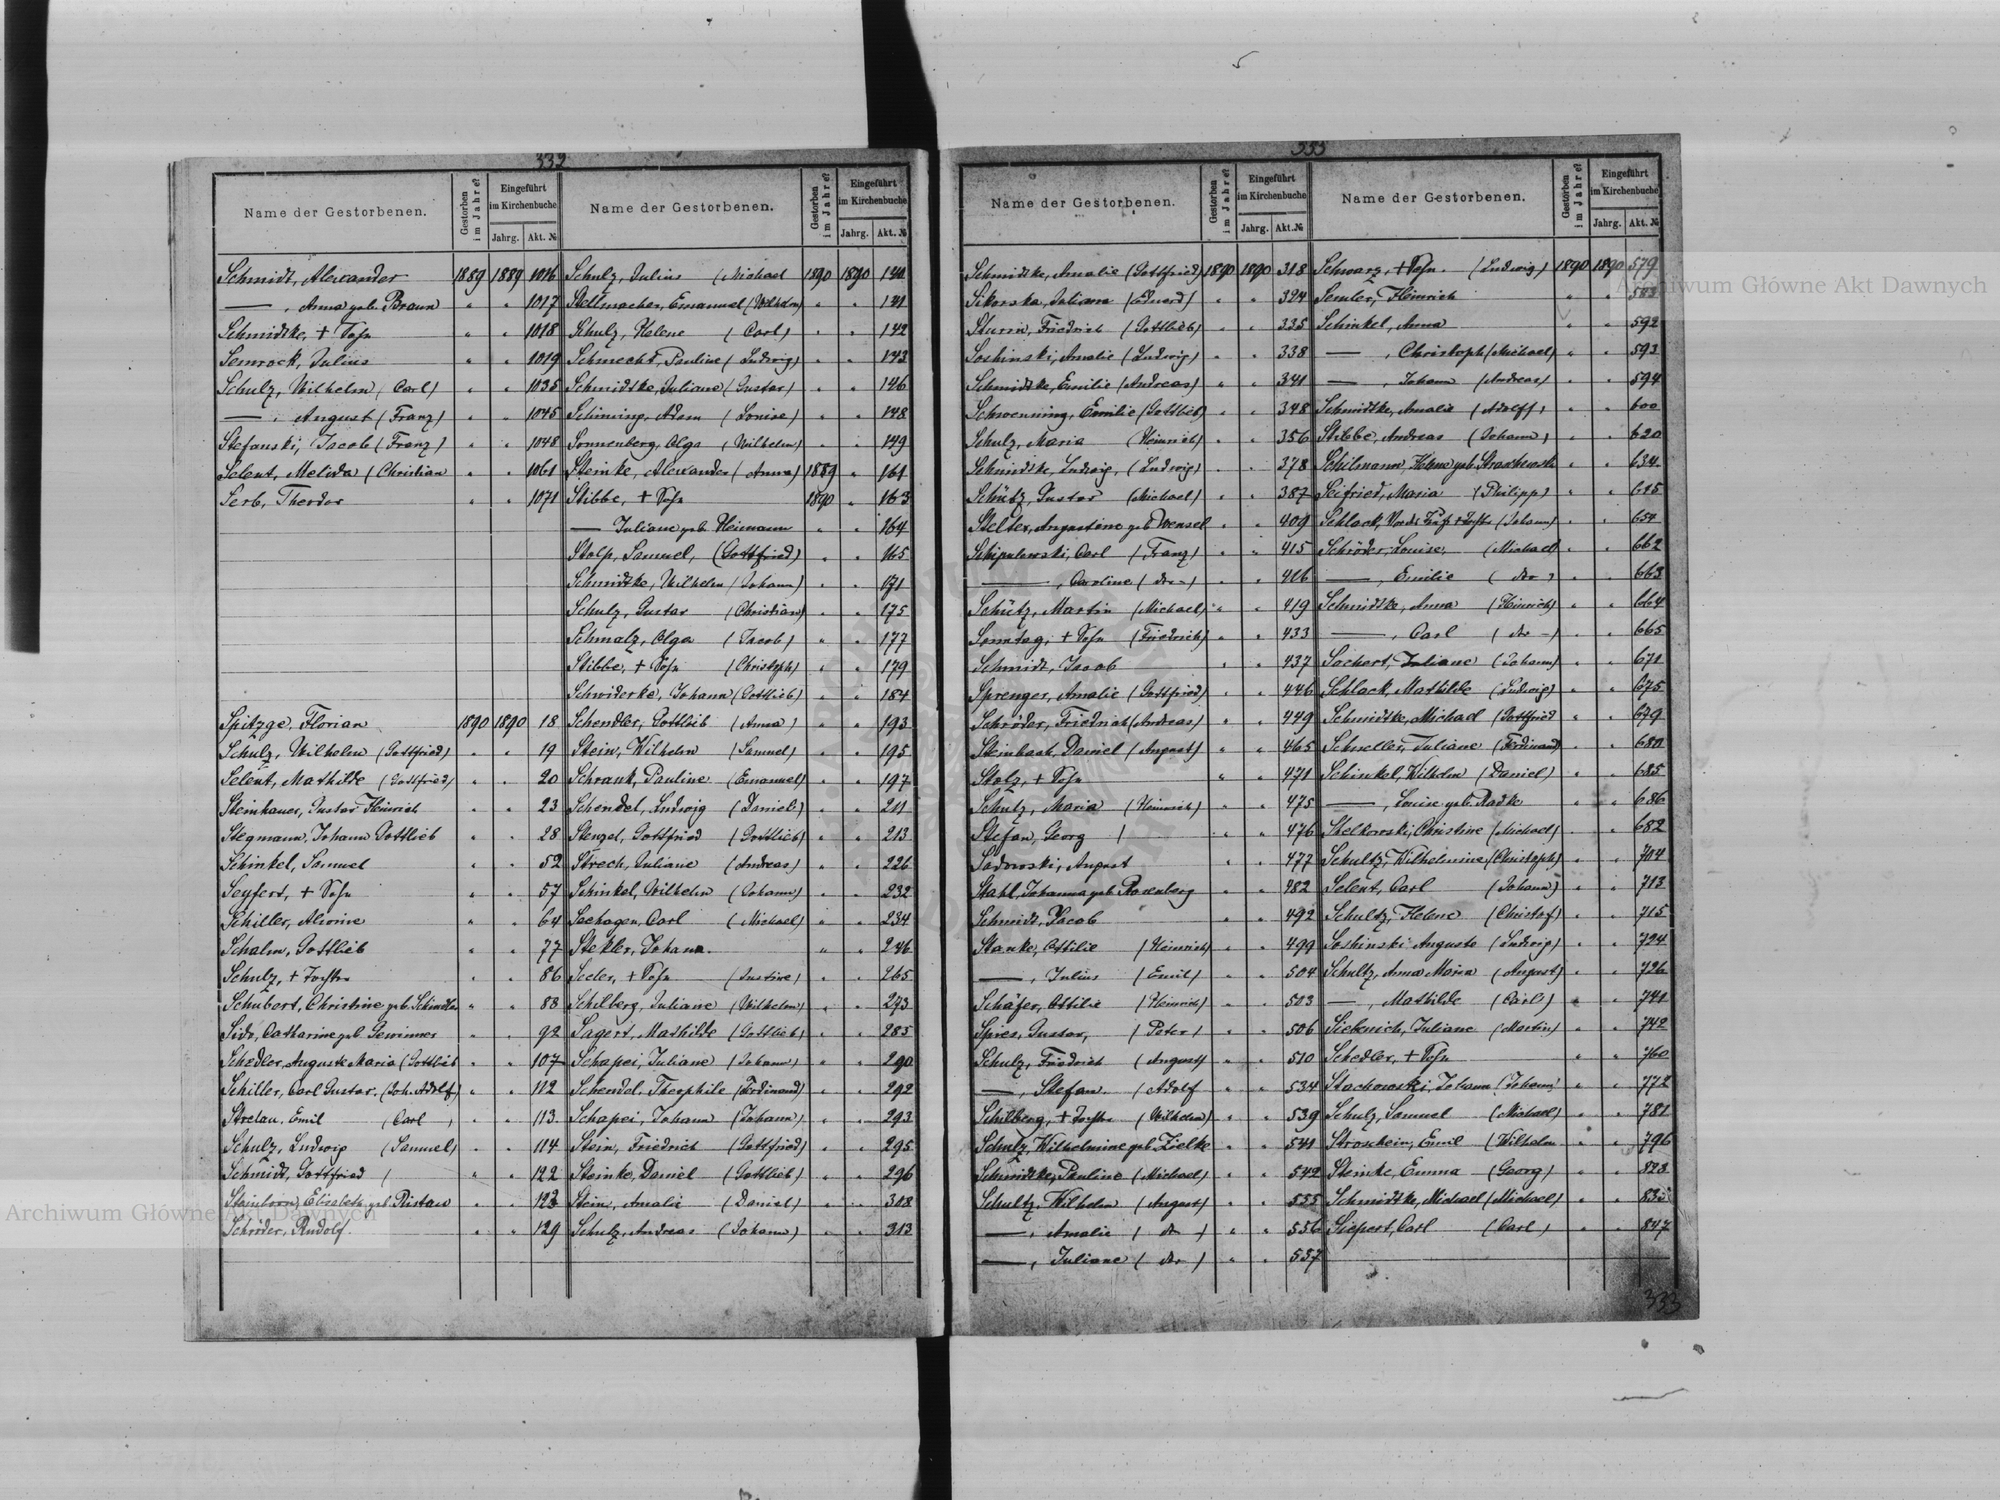 332
Name der Gestorbenen. Gestorben im Jahre? Eingeführt im Kirchenbuche Jahrg. Akt. №
Schmidt, Alexander 1889 1889 1016
—, Anna geb. Braun " " 1017
Schmidtke, + Sohn " " 1018
Semrock, Julius " " 1019
Schulz, Wilhelm (Carl) " " 1035
—, August (Franz) " " 1045
Stefanski, Jacob (Franz) " " 1048
Selent, Melida (Christian " " 1061
Serb, Theodor " " 1071
Spitzge, Florian 1890 1890 18
Schulz, Wilhelm (Gottfried) " " 19
Selent, Mathilde (Gottfried) " " 20
Steinhauer, Gustav Heinrich " " 23
Stegmann, Johann Gottlieb " " 28
Schinkel, Samuel " " 52
Seyfert, + Sohn " " 57
Schiller, Alwine " " 64
Schalm, Gottlieb " " 77
Schulz, + Tochter " " 86
Schubert, Christine geb. Schindler " " 88
Catharine geb. " " 92
Schedler, Auguste Maria (Gottlieb " " 107
Schiller, Carl Gustav. (Joh. Adolf) " " 112
Strelau, Emil (Carl) " " 113
Schulz, Ludwig (Samuel) " " 114
Schmidt, Gottfried ( " " 122
Elisabeth geb. Ristau " " 123
Schröder, Rudolf. " " 129
Name der Gestorbenen. Gestorben im Jahre? Eingeführt im Kirchenbuche Jahrg. Akt. №
Schulz, Julius (Michael 1890 1890
Stellmacher, Emanuel (Wilhelm) " " 141
Schulz, Helene (Carl) " " 142
Schmecht, Pauline (Ludwig) " " 143
Schmidtke, Juliane (Gustav) " " 146
Schirning, Adam (Louise) " " 148
Sonnenberg, Olga (Wilhelm) " " 149
Steinke, Alexander (Anna) 1889 " 161
Stibbe, + Sohn 1890 " 163
— Juliane geb. Heimann " " 164
Stolp, Samuel, (Gottfried) " " 165
Schmidtke, Wilhelm (Johann) " " 171
Schulz, Gustav (Christian) " " 175
Schmalz, Olga (Jacob) " " 177
Stibbe, + Sohn (Christoph) " " 179
Schwiderke, Johann (Gottlieb) " " 184
Schendler, Gottlieb (Anna) " " 193
Stein, Wilhelm (Samuel) " " 195
Schrank, Pauline (Emanuel) " " 197
Schendel, Ludwig (Daniel) " " 211
Stenzel, Gottfried (Gottlieb) " " 213
Strech, Juliane (Andreas) " " 226
Schinkel, Wilhelm (Johann) " " 232
Sachagen, Carl (Michael) " " 234
Stekler, Johann. " " 246
Seeler, + Sohn (Justine) " " 265
Schilberg, Juliane (Wilhelm) " " 273
Sagert, Mathilde (Gottlieb) " " 285
Schapei, Juliane (Johann) " " 290
Schendel, Theophile (Ferdinand) " " 292
Schapei, Johann (Johann) " " 293
Stein, Friedrich (Gottfried) " " 295
Steinke, Daniel (Gottlieb) " " 296
Stein, Amalie (Daniel) " " 308
Schulz, Andreas (Johann) " " 313
333
Name der Gestorbenen. Gestorben im Jahre? Eingeführt im Kirchenbuche Jahrg. Akt. №
Schmidtke, Amalie (Gottfried) 1890 1890 318
Sikorska, Juliane (Eduard) " " 324
Sturm, Friedrich (Gottlieb) " " 335
Soshinski, Amalie (Ludwig) " " 338
Schmidtke, Emilie (Andreas) " " 341
Schwenning, Emilie (Gottlieb) " " 348
Schulz, Maria (Heinrich) " " 356
Schmidtke, Ludwig, (Ludwig) " " 378
Schütz, Gustav (Michael) " " 387
Stelter, Augustine geb. Wensel " " 409
Schipulowski, Carl (Franz) " " 415
—, Caroline (dto —) " " 416
Schütz, Martin (Michael) " " 419
Sonntag, + Sohn (Friedrich) " " 433
Schmidt, Jacob " " 437
Sprenger, Amalie (Gottfried) " " 446
Schröder, Friedrich (Andreas) " " 449
Steinbach, Daniel (August) " " 465
Stolz, + Sohn " " 471
Schulz, Maria (Heinrich) " " 475
Stefan, Georg ( " " 476
Sadowski, August " " 477
Stahl, Johanna geb. Rosenberg " " 482
Schmidt, Jacob " " 492
Stanke, Ottilie (Heinrich) " " 499
—, Julius (Emil) " " 504
Schäfer, Ottilie (Heinrich) " " 503
Spies, Gustav, (Peter) " " 506
Schulz, Friedrich (August) " " 510
—, Stefan (Adolf " " 534
Schilberg, + Tochter (Wilhelm) " " 539
Schulz, Wilhelmine geb. Zielke " " 541
Schmidtke, Pauline (Michael) " " 542
Schultz, Wilhelm (August) " " 555
—, Amalie (dto) " " 556
—, Juliane (dto) " " 557
Name der Gestorbenen. Gestorben im Jahre? Eingeführt im Kirchenbuche Jahrg. Akt. №
Schwarz, + Sohn. (Ludwig) 1890 1890 579
Semler, Heinrich " " 583
Schinkel, Anna " " 592
—, Christoph (Michael) " " 593
—, Johann (Andreas) " " 594
Schmidtke, Amalie (Adolff) " " 600
Stibbe, Andreas (Johann) " " 620
Schilmann, Helene geb. " " 634
Seifried, Maria (Philipp) " " 645
Schlack, (Johann) " " 654
Schröder, Louise, (Michael) " " 662
—, Emilie (dto) " " 663
Schmidtke, Anna (Heinrich) " " 664
—, Carl (dto —) " " 665
Sochert, Juliane (Johann) " " 671
Schlack, Mathilde (Ludwig) " " 675
Schmidtke, Michael (Gottfried " " 679
Schneller, Juliane (Ferdinand) " " 680
Schinkel, Wilhelm (Daniel) " " 685
—, Louise geb. Radke " " 686
Stelkowski, Christine (Michael) " " 682
Schultz, Wilhelmine (Christoph) " " 704
Selent, Carl (Johann) " " 713
Schultz, Helene (Christof) " " 715
Soshinski, Auguste (Ludwig) " " 724
Schultz, Anna Maria (August) " " 726
—, Mathilde (Carl) " " 741
Siebenich, Juliane (Martin) " " 742
Schedler, + Sohn " " 760
Stachowski, Johann (Johann) " " 772
Schulz, Samuel (Michael) " " 781
Stroschein, Emil (Wilhelm " " 796
Steinke, Emma (Georg) " " 823
Schmidtke, Michael (Michael) " "
Siepert, Carl (Carl) " " 847
333
Archiwum Główne Akt Dawnych
Archiwum Główne Akt Dawnych